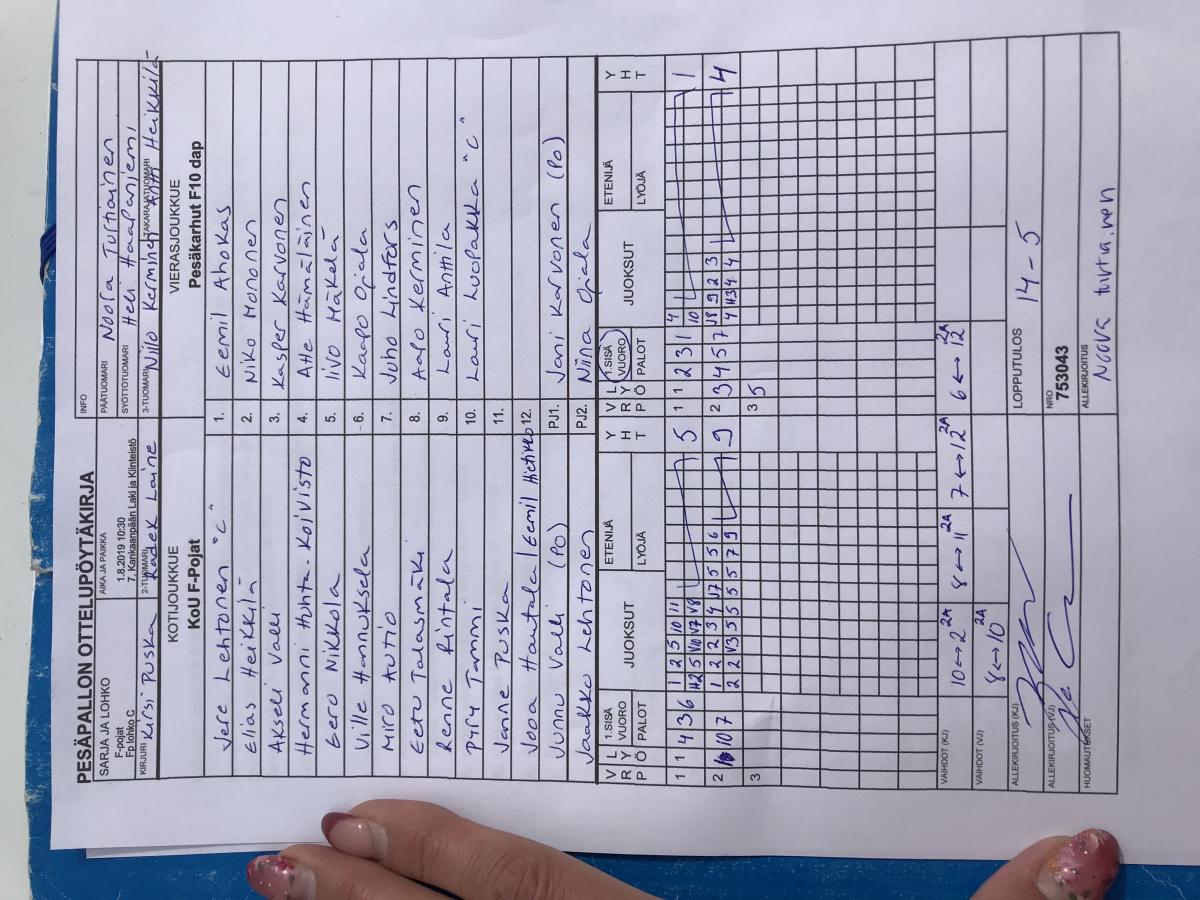 PESÄPALLON OTTELUPÖYTÄKIRJA
INFO
SARJA JA LOHKO
F-pojat
Fp lohko C
AIKA JA PAIKKA
1.8.2019 10:30
7. Kankaanpään Laki ja Kiinteistö
PÄÄTUOMARI Noora Turtiainen
SYÖTTÖTUOMARI Heli Haapaniemi
KIRJURI Kirsi Puska
2-TUOMARI Radek Laine
3-TUOMARI Niilo Kerminen
TAKARAJATUOMARI Antti Heikkilä
KOTIJOUKKUE
KoU F-Pojat
VIERASJOUKKUE
Pesäkarhut F10 dap
Jere Lehtonen "C" 1. Eemil Ahokas
Elias Heikkilä 2. Niko Mononen
Akseli Valli 3. Kasper Karvonen
Hermanni Hohta-Koivisto 4. Atte Hämäläinen
Eero Nikkola 5. Iivo Mäkelä
Ville Hannuksela 6. Kaapo Ojala
Miro Autio 7. Juho Lindfors
Eetu Talasmäki 8. Aapo Kerminen
Renne Rintala 9. Lauri Anttila
Pyry Tammi 10. Lauri Luopakka "C"
Janne Puska 11.
Jooa Hautala / Eemil Hietikko 12.
Junnu Valli (PO) PJ1. Jani Karvonen (PO)
Jaakko Lehtonen PJ2. Niina Ojala
V R P L Y Ö 1.SISÄ VUORO PALOT JUOKSUT ETENIJÄ LYÖJÄ Y H T V R P L Y Ö 1.SISÄ VUORO PALOT JUOKSUT ETENIJÄ LYÖJÄ Y H T
1 1 4 3 6 1 2 5 10 11 5 1 1 2 3 1 4 1
H2 5 V10 V7 V8 10
2 10 7 1 2 2 3 4 J7 5 5 6 9 2 3 4 5 7 J8 9 2 3 4
2 2 V3 5 5 5 5 7 9 4 H3 4 4
3 3 5
VAIHDOT (KJ) 10↔2 2A 8↔11 2A 7↔12 2A 6↔12 2A
VAIHDOT (VJ) 8↔10 2A
ALLEKIRJOITUS (KJ)
LOPPUTULOS 14-5
ALLEKIRJOITUS (VJ)
NRO
753043
HUOMAUTUKSET
ALLEKIRJOITUS
Noora Turtiainen